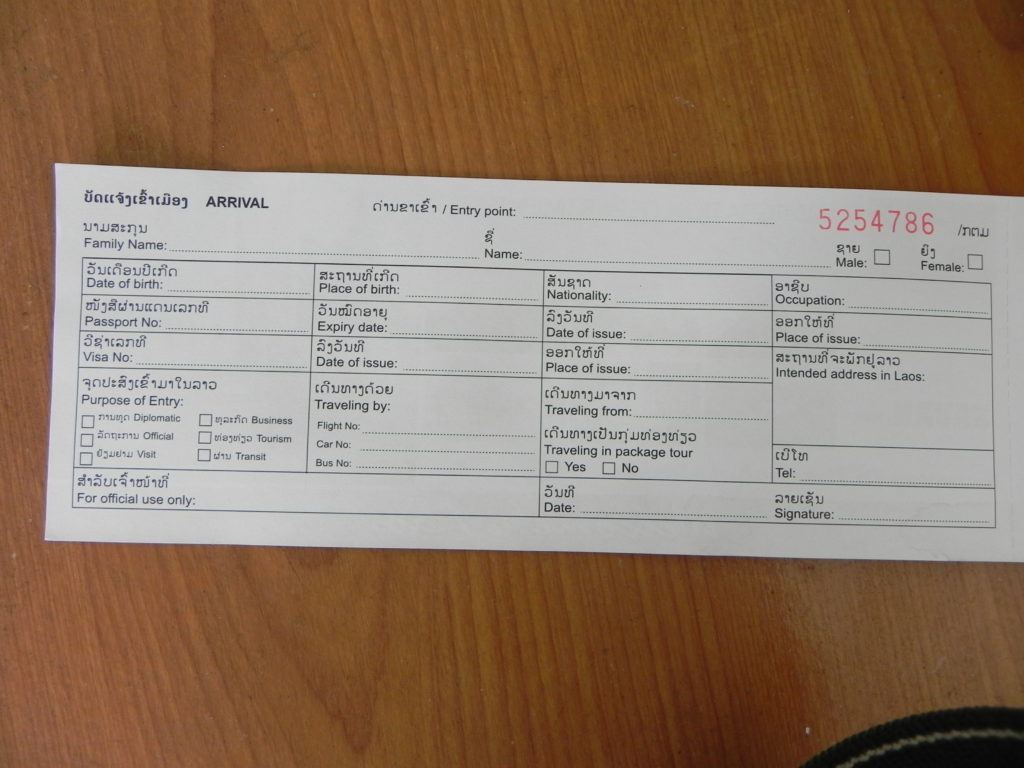 ບັດແຈ້ງເຂົ້າເມືອງ ARRIVAL
ດ່ານຂາເຂົ້າ / Entry point:
5254786 /ກຕມ
ນາມສະກຸນ
Family Name:
ຊື່
Name:
ຊາຍ
Male:
ຍິງ
Female:
ວັນເດືອນປີເກີດ
Date of birth:
ສະຖານທີ່ເກີດ
Place of birth:
ສັນຊາດ
Nationality:
ອາຊີບ
Occupation:
ໜັງສືຜ່ານແດນເລກທີ
Passport No:
ວັນໝົດອາຍຸ
Expiry date:
ລົງວັນທີ
Date of issue:
ອອກໃຫ້ທີ່
Place of issue:
ວີຊ່າເລກທີ
Visa No:
ລົງວັນທີ
Date of issue:
ອອກໃຫ້ທີ່
Place of issue:
ສະຖານທີ່ຈະພັກຢູ່ລາວ
Intended address in Laos:
ຈຸດປະສົງເຂົ້າມາໃນລາວ
Purpose of Entry:
ການທູດ Diplomatic
ທຸລະກິດ Business
ລັດຖະການ Official
ທ່ອງທ່ຽວ Tourism
ຢ້ຽມຢາມ Visit
ຜ່ານ Transit
ເດີນທາງດ້ວຍ
Traveling by:
Flight No:
Car No:
Bus No:
ເດີນທາງມາຈາກ
Traveling from:
ເດີນທາງເປັນກຸ່ມທ່ອງທ່ຽວ
Traveling in package tour
Yes No
ເບີໂທ
Tel:
ສຳລັບເຈົ້າໜ້າທີ່
For official use only:
ວັນທີ
Date:
ລາຍເຊັນ
Signature: